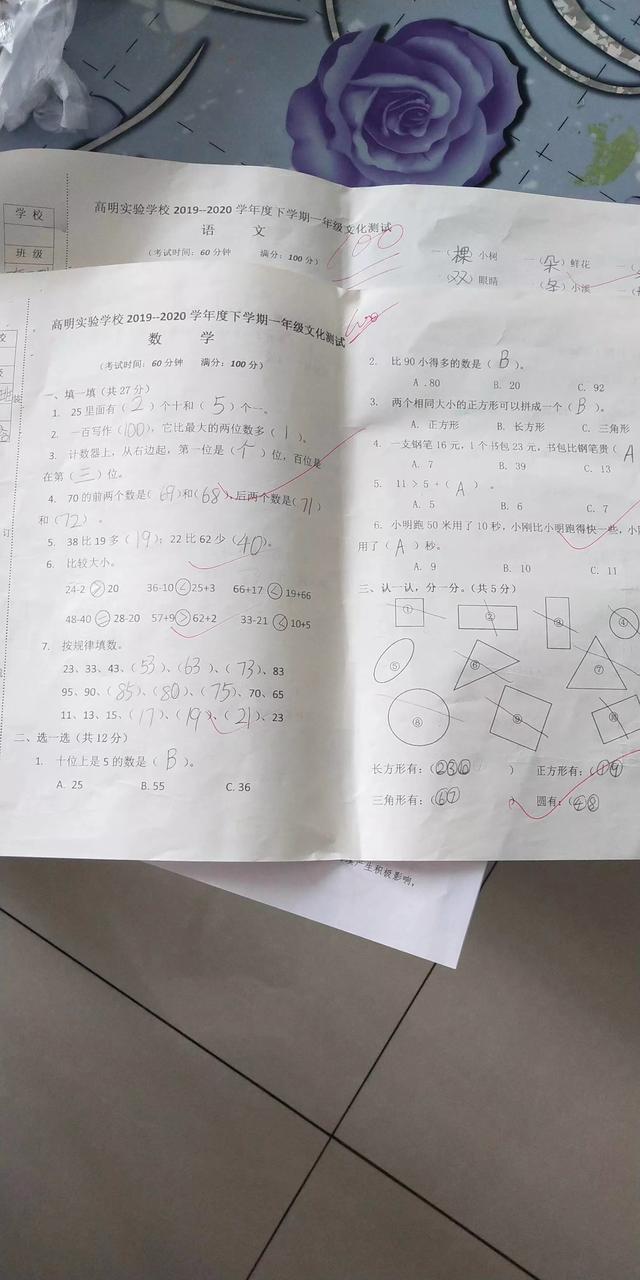 学校
班级
高明实验学校2019--2020学年度下学期一年级文化测试
语 文
(考试时间:60分钟 满分:100分)
100
一(棵)小树 一(朵)鲜花
(双)眼睛 (条)小溪
高明实验学校2019--2020学年度下学期一年级文化测试
数 学
100
(考试时间:60分钟 满分:100分)
一、填一填(共27分)
1. 25里面有(2)个十和(5)个一。
2. 一百写作(100),它比最大的两位数多(1)。
3. 计数器上,从右边起,第一位是(个)位,百位是
在第(三)位。
4. 70的前两个数是(69)和(68),后两个数是(71)
和(72)。
5. 38比19多(19);22比62少(40)。
6. 比较大小。
24-2>20 36-10<25+3 66+17<19+66
48-40=28-20 57+9>62+2 33-21<10+5
7. 按规律填数。
23、33、43、(53)、(63)、(73)、83
95、90、(85)、(80)、(75)、70、65
11、13、15、(17)、(19)、(21)、23
二、选一选(共12分)
1. 十位上是5的数是(B)。
A. 25 B. 55 C. 36
2. 比90小得多的数是(B)。
A. 80 B. 20 C. 92
3. 两个相同大小的正方形可以拼成一个(B)。
A. 正方形 B. 长方形 C. 三角形
4. 一支钢笔16元,1个书包23元,书包比钢笔贵(A
A. 7 B. 39 C. 13
5. 11>5+(A)。
A. 5 B. 6 C. 7
6. 小明跑50米用了10秒,小刚比小明跑得快一些,小
用了(A)秒。
A. 9 B. 10 C. 11
三、认一认,分一分。(共5分)
① ② ③ ④
⑤ ⑥ ⑦
⑧ ⑨ ⑩
长方形有:(②③⑩) 正方形有:(①⑨)
三角形有:(⑥⑦) 圆有:(④⑧)
装
订
产生积极影响,